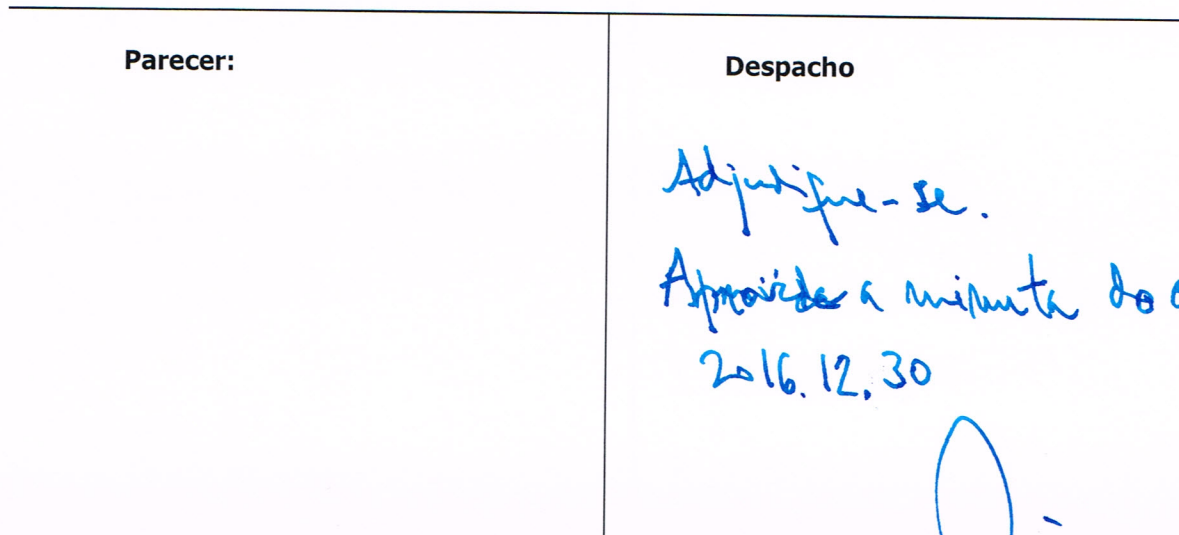 Parecer:
Despacho
Adjudique-se.
a minuta do
2016.12.30